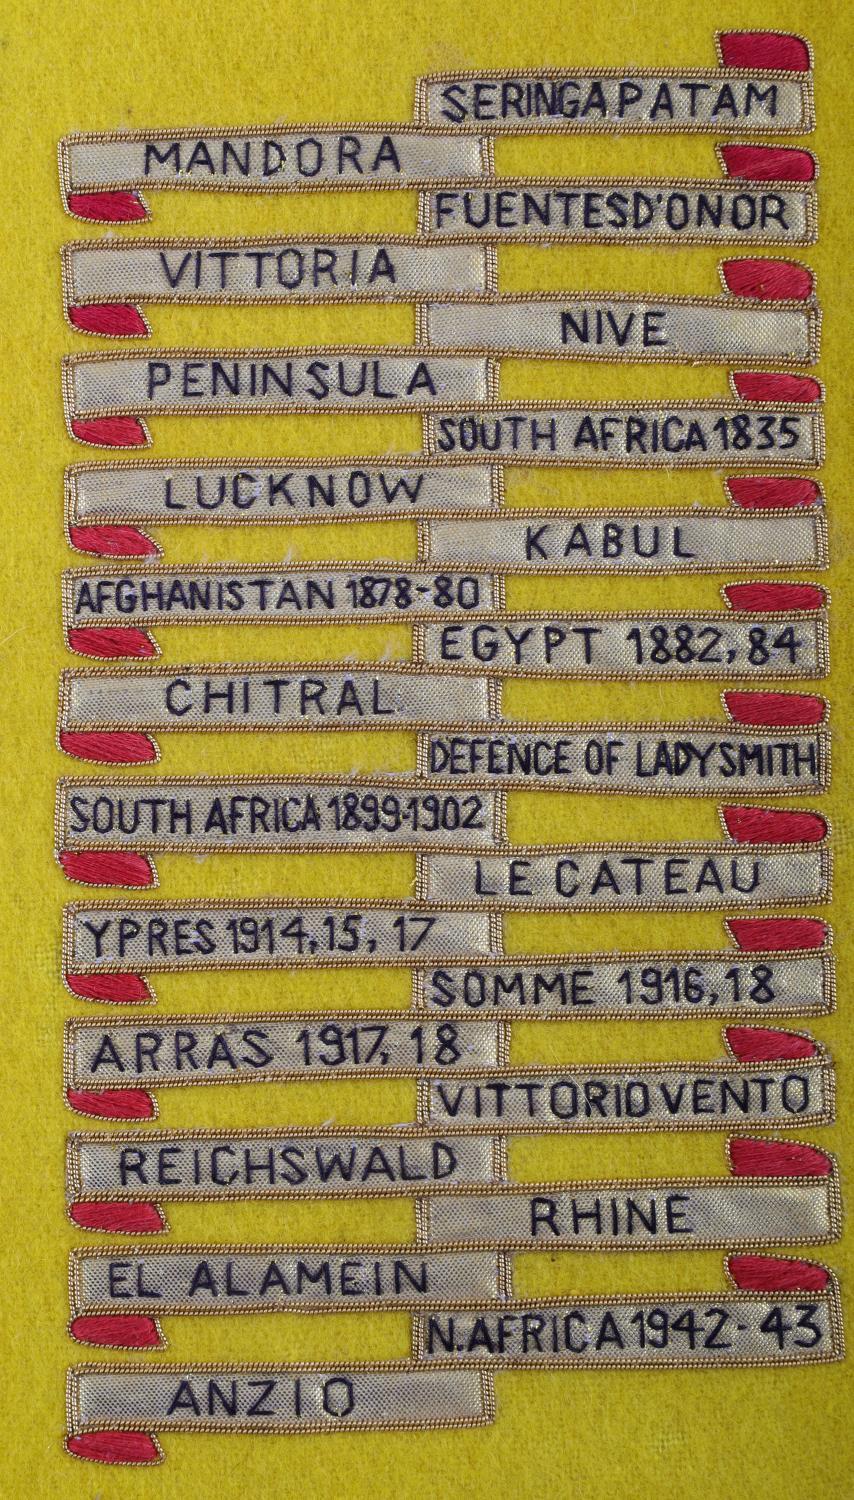 SERINGAPATAM
MANDORA
FUENTESD'ONOR
VITTORIA
NIVE
PENINSULA
SOUTH AFRICA 1835
LUCKNOW
KABUL
AFGHANISTAN 1878-80
EGYPT 1882,84
CHITRAL
DEFENCE OF LADYSMITH
SOUTH AFRICA 1899-1902
LE CATEAU
YPRES 1914,15,17
SOMME 1916,18
ARRAS 1917,18
VITTORIO VENTO
REICHSWALD
RHINE
EL ALAMEIN
N.AFRICA 1942-43
ANZIO